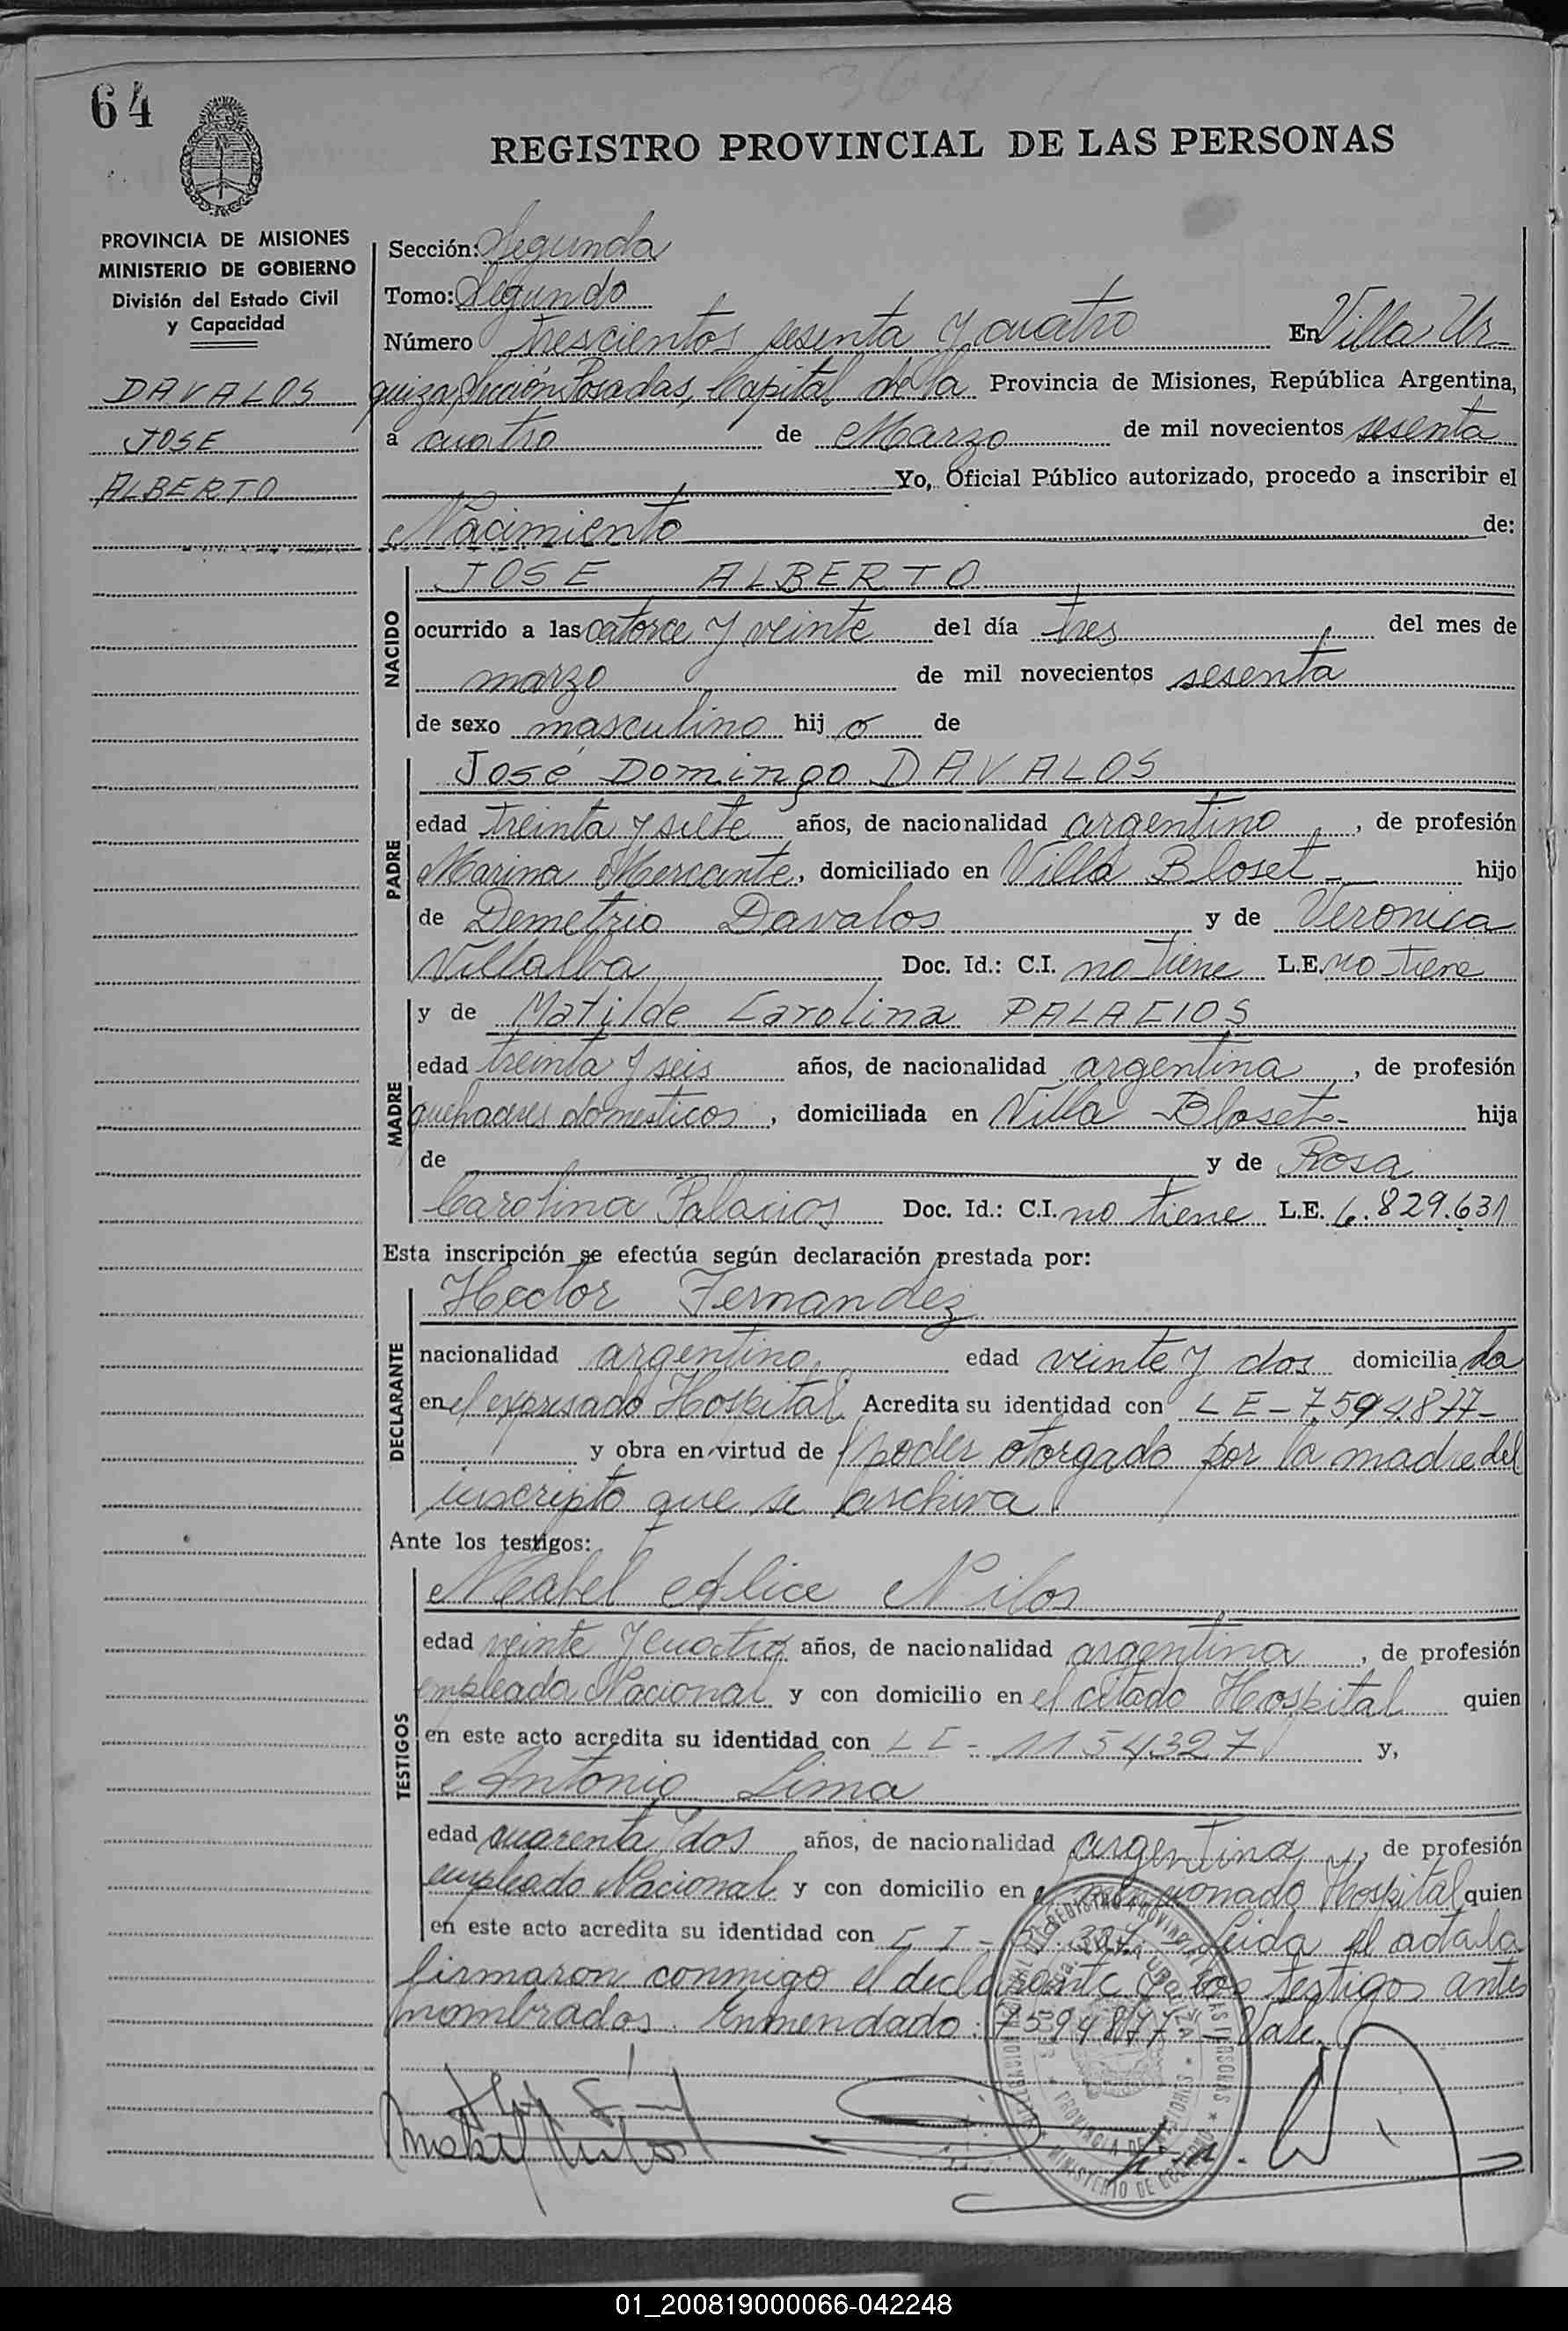 64
REGISTRO PROVINCIAL DE LAS PERSONAS
PROVINCIA DE MISIONES
MINISTERIO DE GOBIERNO
División del Estado Civil
y Capacidad
DAVALOS
JOSE
ALBERTO
Sección: Segunda
Tomo: Segundo
Número trescientos sesenta y cuatro En Villa Ur-
quiza, Posadas, Capital de la Provincia de Misiones, República Argentina,
a cuatro de Marzo de mil novecientos sesenta
Yo, Oficial Público autorizado, procedo a inscribir el
Nacimiento de:
NACIDO
JOSE ALBERTO
ocurrido a las catorce y veinte del día tres del mes de
marzo de mil novecientos sesenta
de sexo masculino hijo de
PADRE
José Domingo DAVALOS
edad treinta y siete años, de nacionalidad argentino, de profesión
Marina Mercante, domiciliado en Villa Bloset- hijo
de Demetrio Davalos y de Veronica
Villalba Doc. Id.: C.I. no tiene L.E. no tiene
MADRE
y de Matilde Carolina PALACIOS
edad treinta y seis años, de nacionalidad argentina, de profesión
quehaceres domesticos, domiciliada en Villa Bloset- hija
de y de Rosa
Carolina Palacios Doc. Id.: C.I. no tiene L.E. 6.829.631
Esta inscripción se efectúa según declaración prestada por:
DECLARANTE
Hector Fernandez
nacionalidad argentino, edad veinte y dos domiciliado
en el expresado Hospital. Acredita su identidad con LE-7.594.877-
y obra en virtud de poder otorgado por la madre del
inscripto que se archiva.
Ante los testigos:
TESTIGOS
Mabel Alice Nilos
edad veinte y cuatro años, de nacionalidad argentina, de profesión
empleada Nacional y con domicilio en el citado Hospital quien
en este acto acredita su identidad con 1154327 y,
Antonio Lima
edad cuarenta y dos años, de nacionalidad argentina, de profesión
empleado Nacional y con domicilio en el mencionado Hospital quien
en este acto acredita su identidad con Leida el acta la
firmaron conmigo el declarante y los testigos antes
nombrados. Enmendado: 7594877 Vale.
01_200819000066-042248